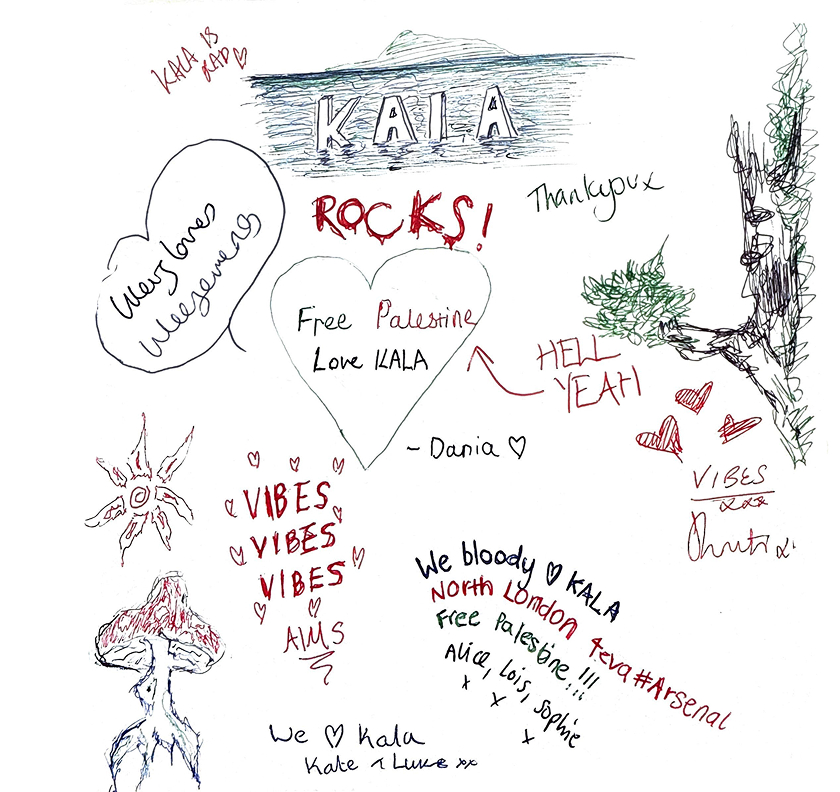 KALA IS
RAD
KALA
ROCKS!
Thankyou x
loves
Free Palestine
Love KALA
HELL
YEAH
- Dania
VIBES
xxx
VIBES
VIBES
VIBES
AIMS
We bloody ♡ KALA
North London 4eva #Arsenal
Free Palestine!!!
Alice, Lois, Sophie
x x x
We ♡ Kala
Kate + Luke xx